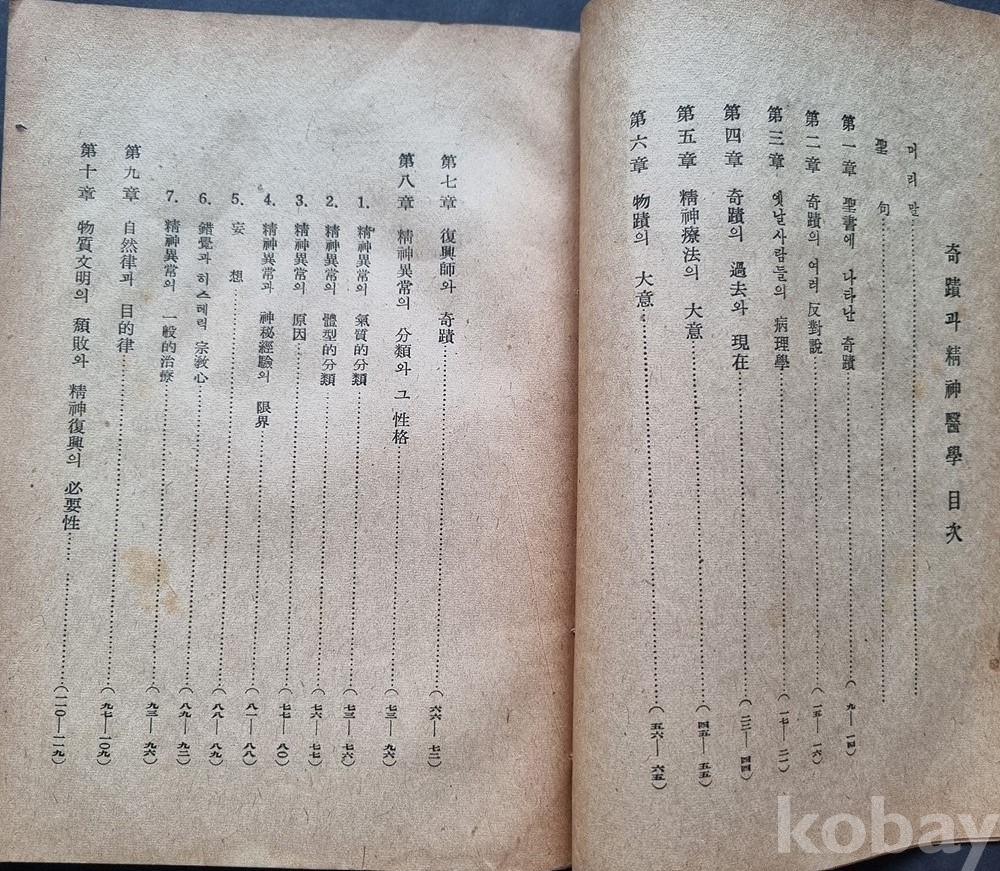 奇蹟과 精神醫學 目次
머리말
聖句
第一章 聖書에 나타난 奇蹟 (九—一四)
第二章 奇蹟의 여러 反對說 (一五—一六)
第三章 옛날사람들의 病理學 (一七—二一)
第四章 奇蹟의 過去와 現在 (二二—四四)
第五章 精神療法의 大意 (四五—五五)
第六章 物蹟의 大意 (五六—六五)
第七章 復興師와 奇蹟 (六六—七二)
第八章 精神異常의 分類와 그 性格 (七三—九六)
1. 精神異常의 氣質的分類 (七三—七六)
2. 精神異常의 體型的分類 (七六—七七)
3. 精神異常의 原因 (七七—八〇)
4. 精神異常과 神秘經驗의 限界 (八一—八八)
5. 妄想 (八八—八九)
6. 錯覺과 히스테릭 宗敎心 (八九—九二)
7. 精神異常의 一般的治療 (九三—九六)
第九章 自然律과 目的律 (九七—一〇九)
第十章 物質文明의 頹敗와 精神復興의 必要性 (一一〇—一一九)
kobay